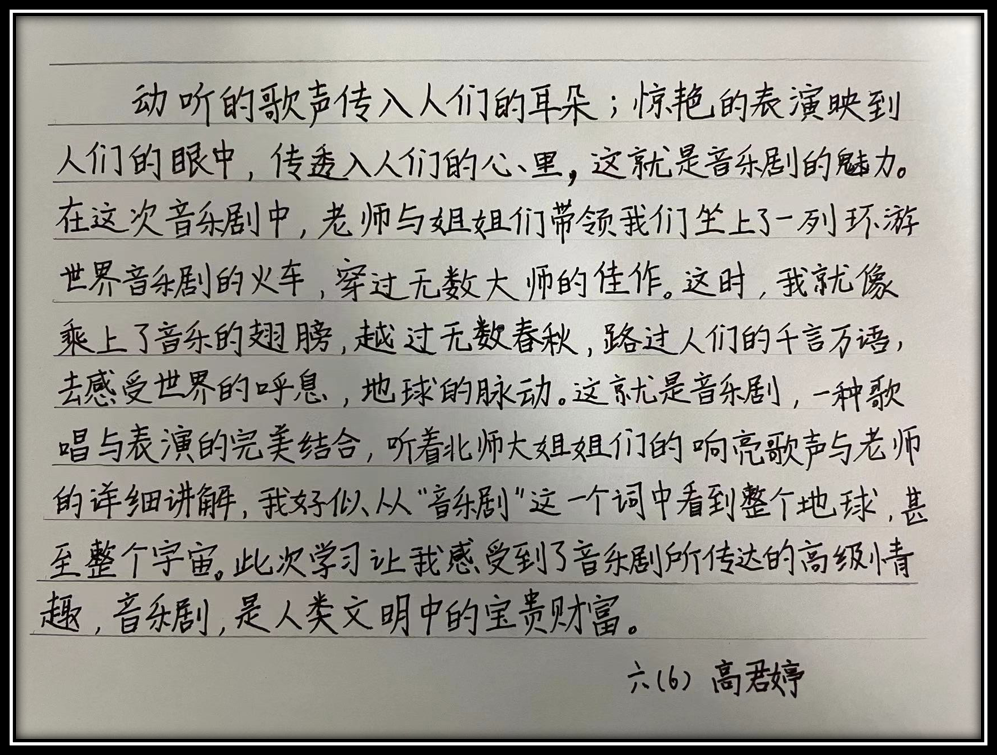 动听的歌声传入人们的耳朵；惊艳的表演映到
人们的眼中，传透入人们的心里，这就是音乐剧的魅力。
在这次音乐剧中，老师与姐姐们带领我们坐上了一列环游
世界音乐剧的火车，穿过无数大师的佳作。这时，我就像
乘上了音乐的翅膀，越过无数春秋，路过人们的千言万语，
去感受世界的呼息，地球的脉动。这就是音乐剧，一种歌
唱与表演的完美结合，听着北师大姐姐们的响亮歌声与老师
的详细讲解，我好似从“音乐剧”这一个词中看到整个地球，甚
至整个宇宙。此次学习让我感受到了音乐剧所传达的高级情
趣，音乐剧，是人类文明中的宝贵财富。
六(6) 高君婷